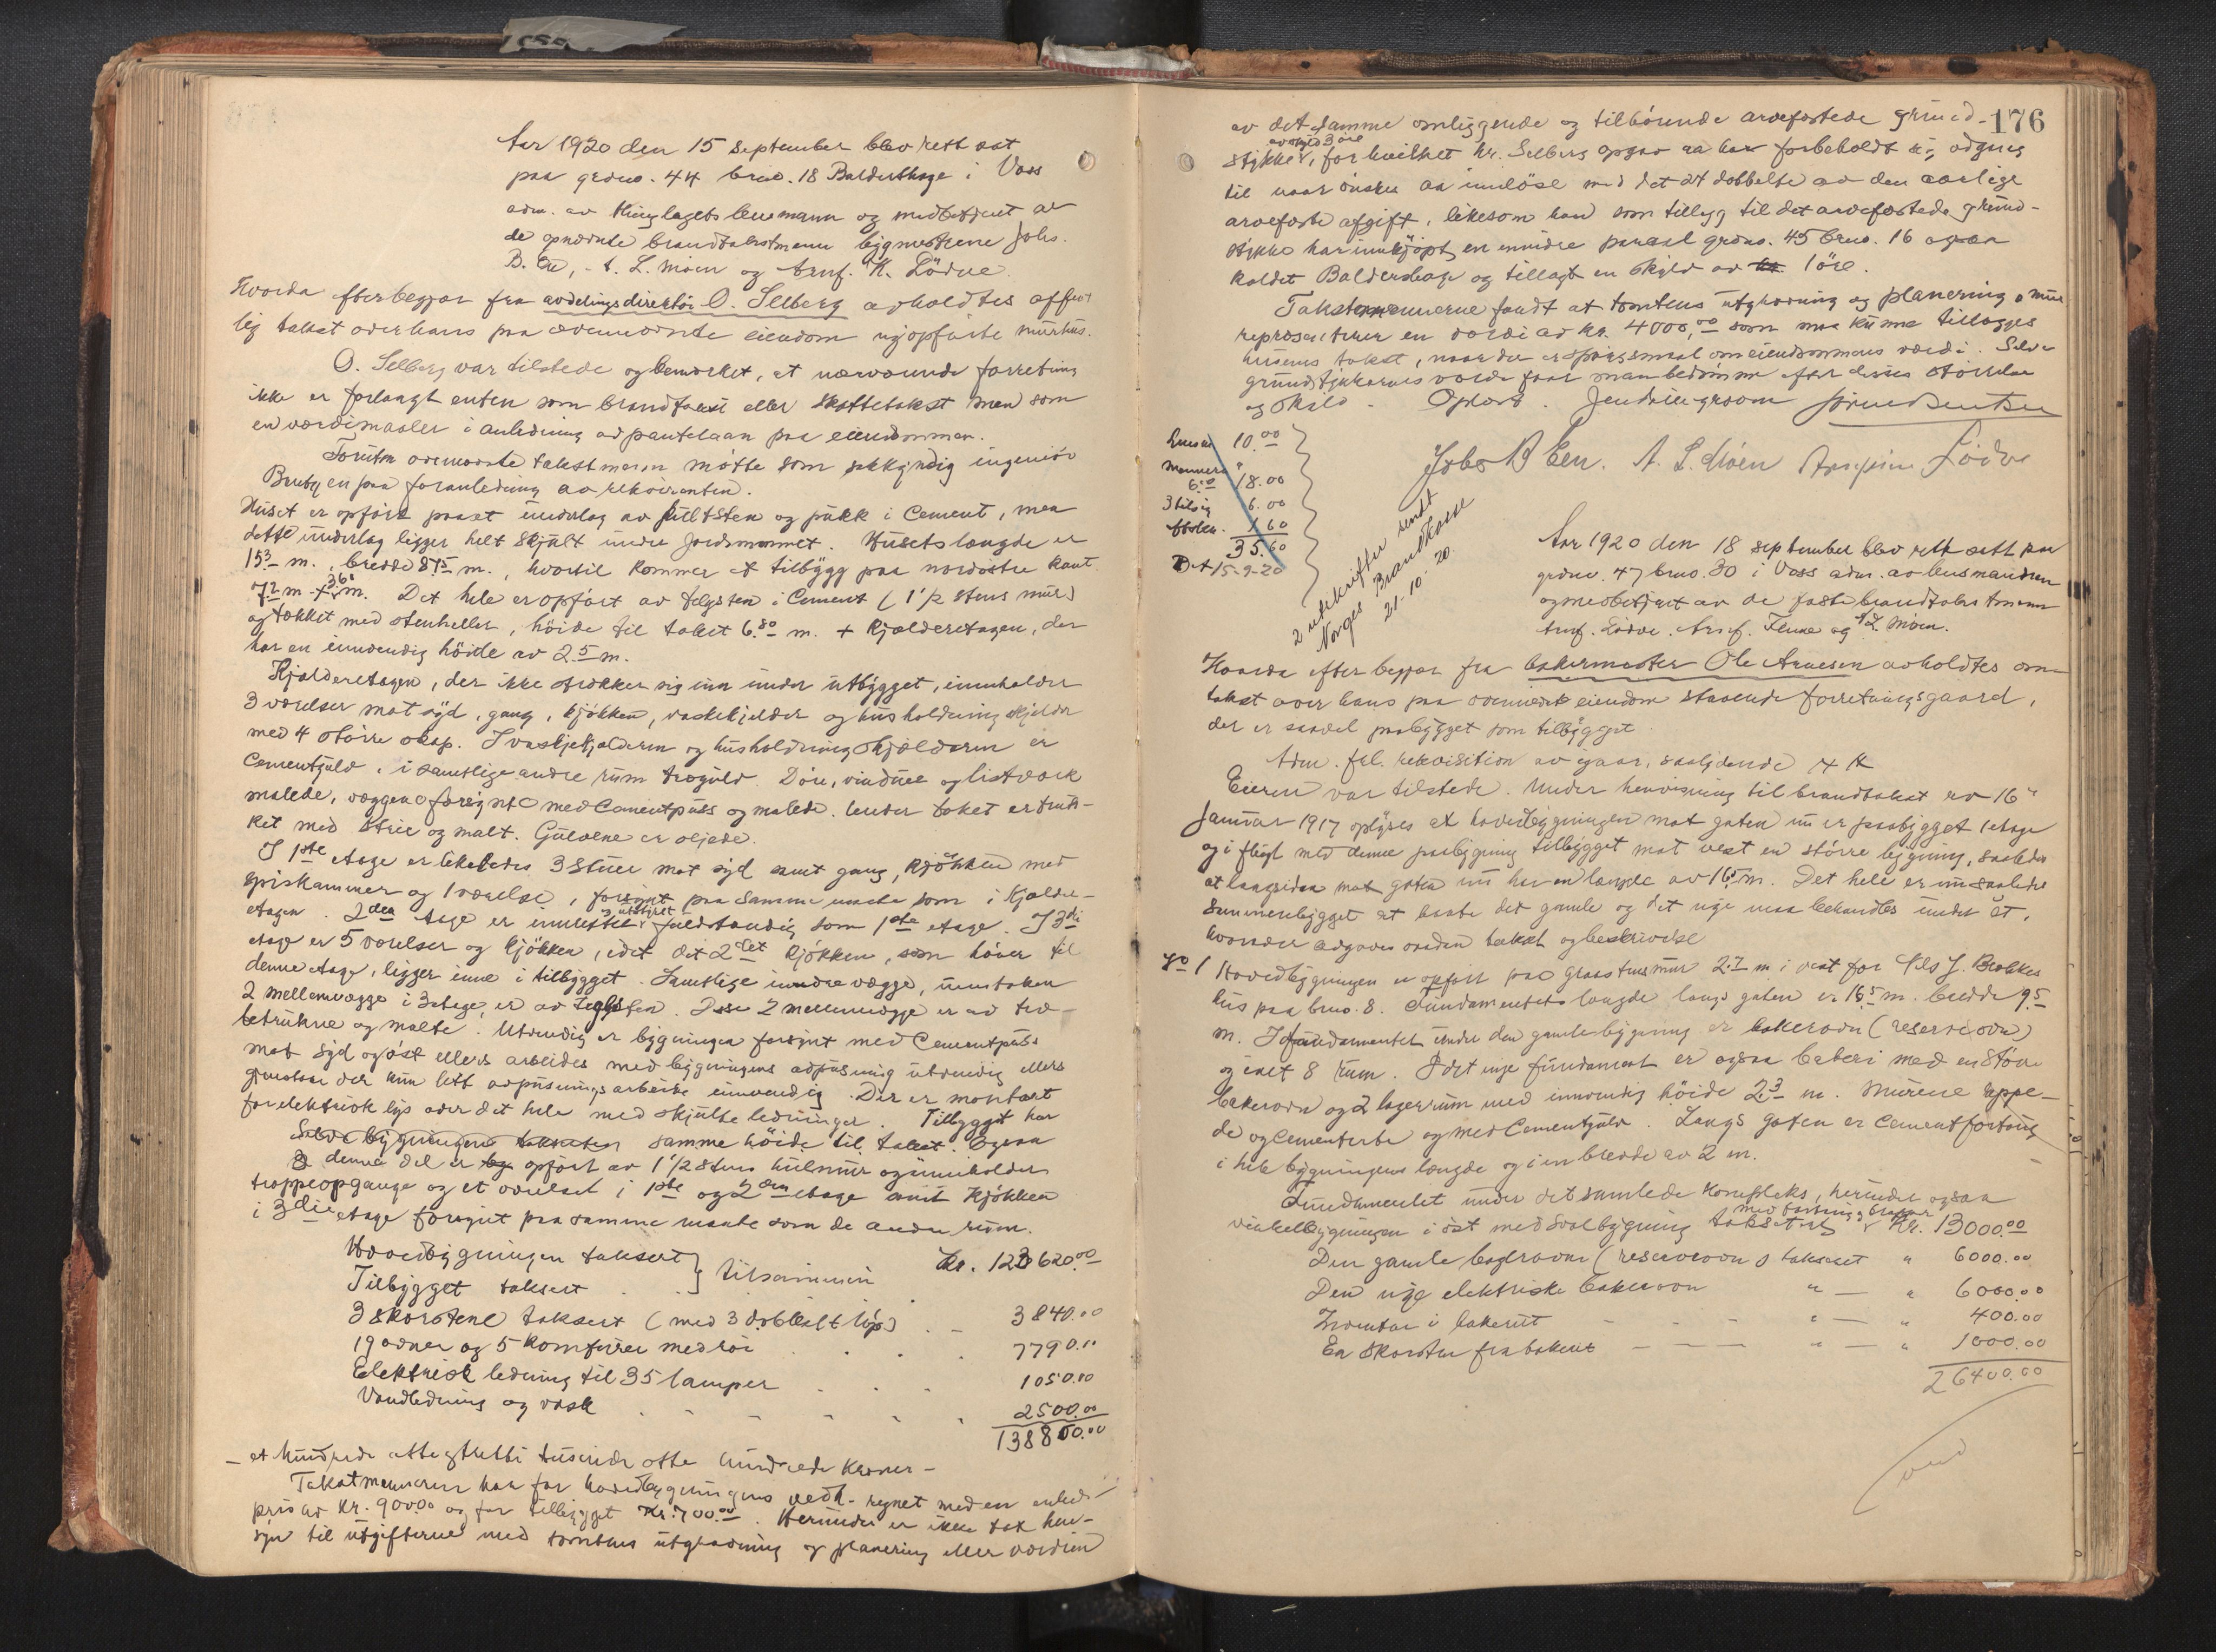 Aar 1920 den 15 september blev rett sat
paa grdno. 44 brno. 18 Baldershage i Voss
adm. av thinglagets lensmann og medbetjent av
de opnævnte brandtakstmenn bygmestrene Johs.
B. Een, A. L. Moen og Arnf. K. Lödve.
Hvorda efter begjær fra avdelingsdirektör O. Selberg avholdtes offent
lig takst over hans paa ovennævnte eiendom nyopförte murhus.
O. Selberg var tilstede og bemerket, at nærværende forretning
ikke er forlangt enten som brandtakst eller skattetakst men som
en værdimaaler i anledning av pantelaan paa eiendommen.
Foruten ovennævnte takstmenn mötte som sakkyndig ingeniör
paa foranledning av rekvirenten.
Huset er opfört paa et underlag av kultsten og pukk i Cement, men
dette underlag ligger helt skjult under jordsmonnet. Husets længde er
15.3 m., bredde 8.75 m., hvortil kommer et tilbygg paa nordöstre kant
7.2 m x 3.6 m. Det hele er opfört av teglsten i Cement (1 1/2 stens mur)
og tækket med stenheller, höide til taket 6.80 m. + Kjælderetagen, der
har en innvendig höide av 2.5 m.
Kjælderetagen, der ikke strækker sig inn under utbygget, inneholder
3 værelser mot syd, gang, kjökken, vaskekjelder og husholdningskjelder
med 4 större skap. I vaskekjælderen og husholdningskjælderen er
Cementgulv, i samtlige andre rum trægulv. Döre, vinduer og listverk
malede, væggene forsynt med Cementpuss og malede. Under taket er truk-
ket med strie og malt. Gulvene er oljede.
I 1ste etage er likeledes 3 stuer mot syd samt gang, kjökken med
spiskammer og 1 værelse, forsynt paa samme maate som i Kjælder-
etagen. 2den etage er innrettet og utstyret fuldstændig som 1ste etage. I 3die
etage er 5 værelser og kjökken, idet det 2det kjökken, som hörer til
denne etage, ligger inne i tilbygget. Samtlige innere vægge, unntaken
2 mellemvægge i 3 etage, er av teglsten. Disse 2 mellemvægge er av træ-
betrukne og malte. Utvendig er bygningen forsynt med Cementpuss
mot syd og öst ellers arbeides med bygningens avpusning utvendig ellers
gjenstaar der kun lett avpusningsarbeide innvendig. Der er montært
for elektrisk lys over det hele med skjulte ledninger. Tilbygget har
Selve bygningene taksten samme höide til taket. Ogsaa
denne del er opfört av 1 1/2 stens hulmur og inneholder
trappeopgange og et værelse i 1ste og 2den etage samt Kjökken
i 3die etage forsynt paa samme maate som de andre rum.
Hovedbygningen taksert } tilsammen Kr. 123620.00
Tilbygget taksert
3 skorstene taksert (med 3 dobbelt löp) 3840.00
19 ovner og 5 Komfyrer med rör 7790.00
Elektrisk ledning til 35 lamper 1050.00
Vandledning og vask 2500.00
138800.00
- et hundrede otte og tretti tusinde otte hundrede kroner -
Takstmennene har for hovedbygningens vedk. regnet med en enheds-
pris av kr. 900.00 og for tilbygget Kr. 700.00. Herunder er ikke tat hen-
syn til utgifterne med tomtens utgravning og planering eller værdien
176
av det samme omliggende og tilhörende arvefæstede grund-
av skyld 3 öre
stykke, for hvilket hr. Selberg opgav aa ha forbeholdt sig adgang
til naar önskes aa innlöse med det 24 dobbelte av den aarlige
arvefæste afgift, likesom han som tillæg til det arvefæstede grund-
stykke har innkjöpt en mindre parsel grdno. 45 brno. 16 ogsaa
kaldet Baldershage og tillagt en skyld av 1 öre.
Takstmennerne fandt at tomtens utgravning og planering o mur
repræsenterer en værdi av kr. 4000,00 som maa kunne tillægges
husens takst, naar der er spörsmaal om eiendommens værdi. Selve
grundstykkernes værdi faar man bedömme efter disses störrelse
og skyld. Oplæst.
Lensm 10.00
Mennene
6.00 18.00
3 tilsig 6.00
1.60
35.60
Bet 15-9-20
Johs B Een. A. L. Moen Lödve
2 utskrifter sendt
Norges Brandkasse
21-10-20.
Aar 1920 den 18 september blev rett satt paa
grdno. 47 brno. 30 i Voss adm. av lensmannen
og medbetjent av de faste brandtakstmenn
Arnf. Lödve, Arnf. Flene og A L. Moen.
Hvorda efter begjær fra bakermester Ole Arnesen avholdtes om-
takst over hans paa ovennævnte eiendom staaende forretningsgaard,
der er saavel paabygget som tilbygget.
Adm. frl. rekvisition av igaar, saalydende
Eieren var tilstede. Under henvisning til brandtakst av 16de
Januar 1917 oplyses at hovedbygningen mot gaten nu er paabygget 1 etage
og i flugt med denne paabygning tilbygget mot vest en större bygning, saaledes
at langsiden mot gaten nu har en længde av 16.5 m. Det hele er nu saaledes
sammenbygget at baade det gamle og det nye maa behandles under et,
hvorover avgaves saadan takst og beskrivelse
No 1 Hovedbygningen er opfört paa graastensmur 2.7 m i vest for Nils J. Brekkes
hus paa brno. 8. Fundamentets længde langs gaten er 16.5 m. bredde 9.5
m. I fundamentet under den gamle bygning er bakerovn (reserveovn)
og ialt 8 rum. I det nye fundament er ogsaa bakeri med en större
bakerovn og 2 lagerrum med innvendig höide 2.3 m. Murene rappe-
de og Cementerte og med Cementgulv. Langs gaten er Cementfortaug
i hele bygningens længde og i en bredde av 2 m.
Fundamentet under det samlede kompleks, herunder ogsaa
vinkelbygningen i öst med svalbygning taksert med fortaug Kr. 13000.00
Den gamle bagerovn (reserveovn) taksert " 6000.00
Den nye elektriske bakerovn " — " 6000.00
Inventar i bakeriet - - - " — " 400.00
En skorsten fra bakeriet — — — " — " 1000.00
26400.00